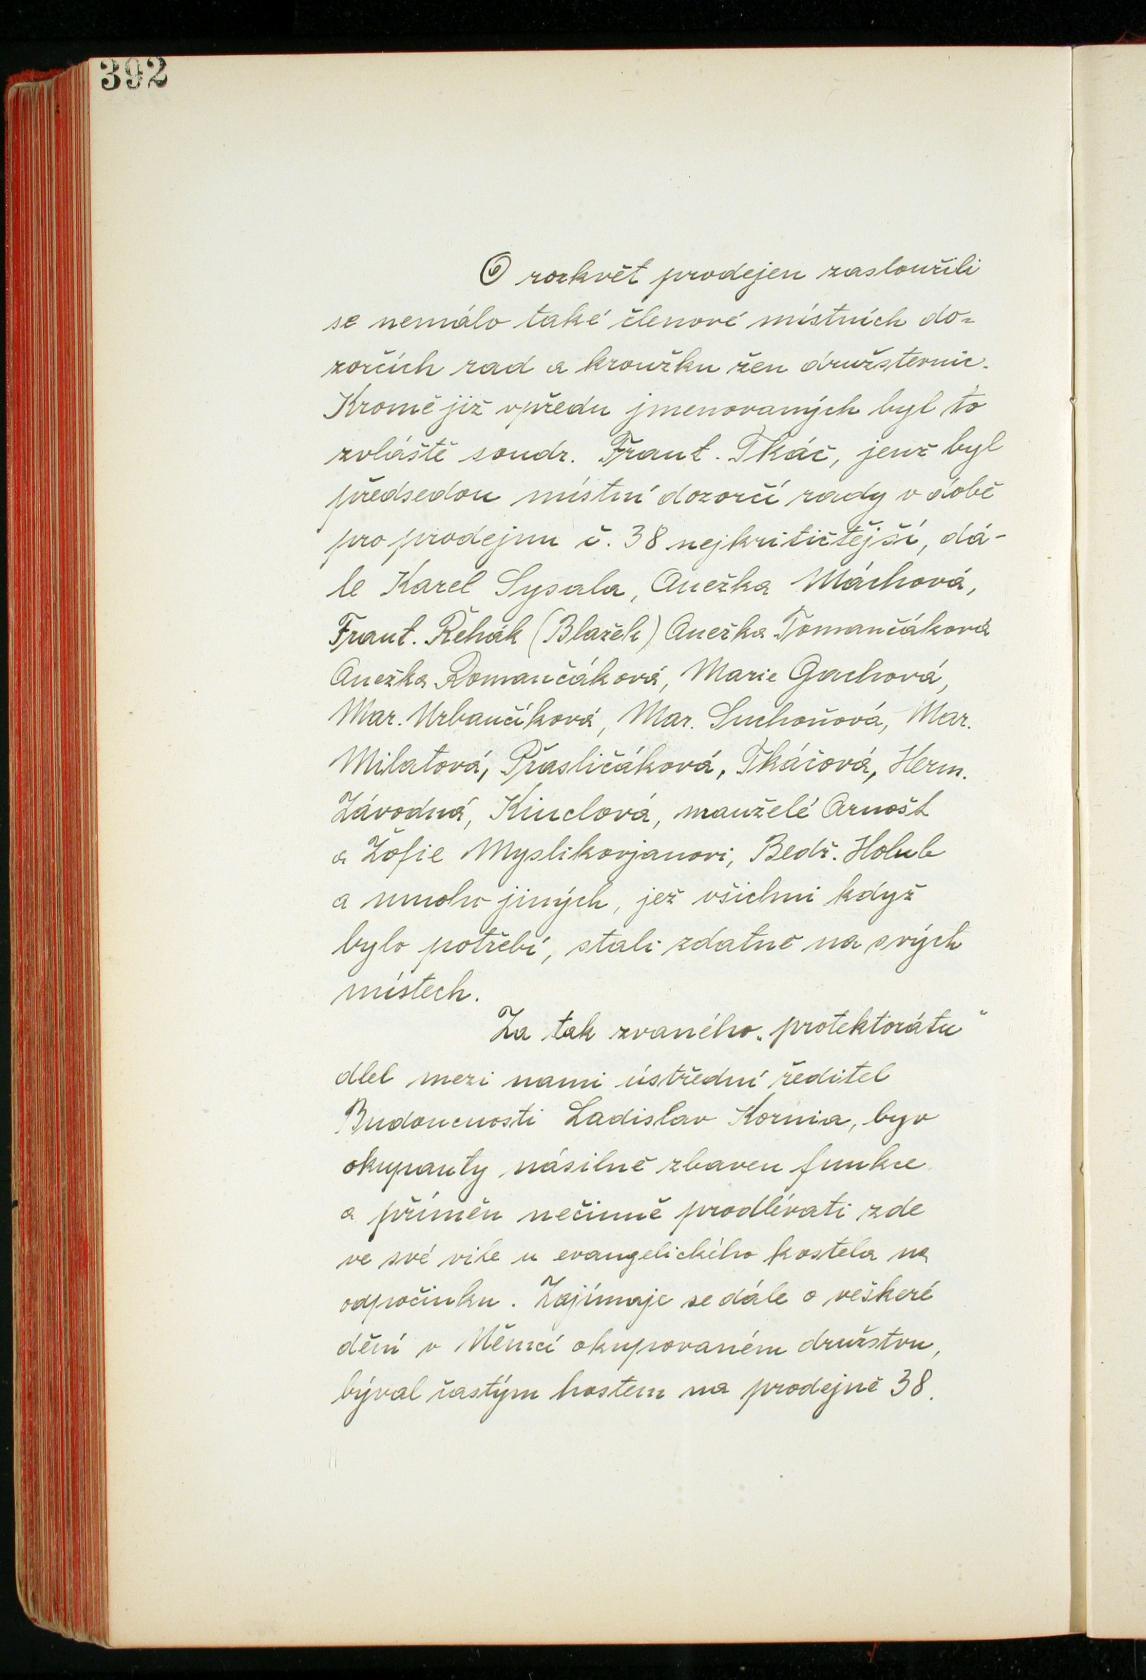 392
O rozkvět prodejen zasloužili
se nemálo také členové místních do-
zorčích rad a kroužku žen družstevnic.
Kromě již vpředu jmenovaných byl to
zvláště soudr. Frant. Tkáč, jenž byl
předsedou místní dozorčí rady v době
pro prodejnu č. 38 nejkritičtější, dá-
le Karel Sysala, Anežka Máchová,
Frant. Řehák (Blažek) Anežka Tomančáková
Anežka Romančáková, Marie Gachová,
Mar. Urbančíková, Mar. Suchoňová, Mar.
Milatová, Prasličáková, Tkáčová, Herm.
Závodná, Kinclová, manželé Arnošt
a Žofie Myslikovjanovi, Bedř. Holub
a mnoho jiných, jež všichni když
bylo potřebí, stáli zdatně na svých
místech.
Za tak zvaného „protektorátu"
dlel mezi námi ústřední ředitel
Budoucnosti Ladislav Kornia, byv
okupanty násilně zbaven funkce
a příměn nečinně prodlívati zde
ve své vile u evangelického kostela na
odpočinku. Zajímaje se dále o veškeré
dění v Němci okupovaném družstvu,
býval častým hostem na prodejně 38.